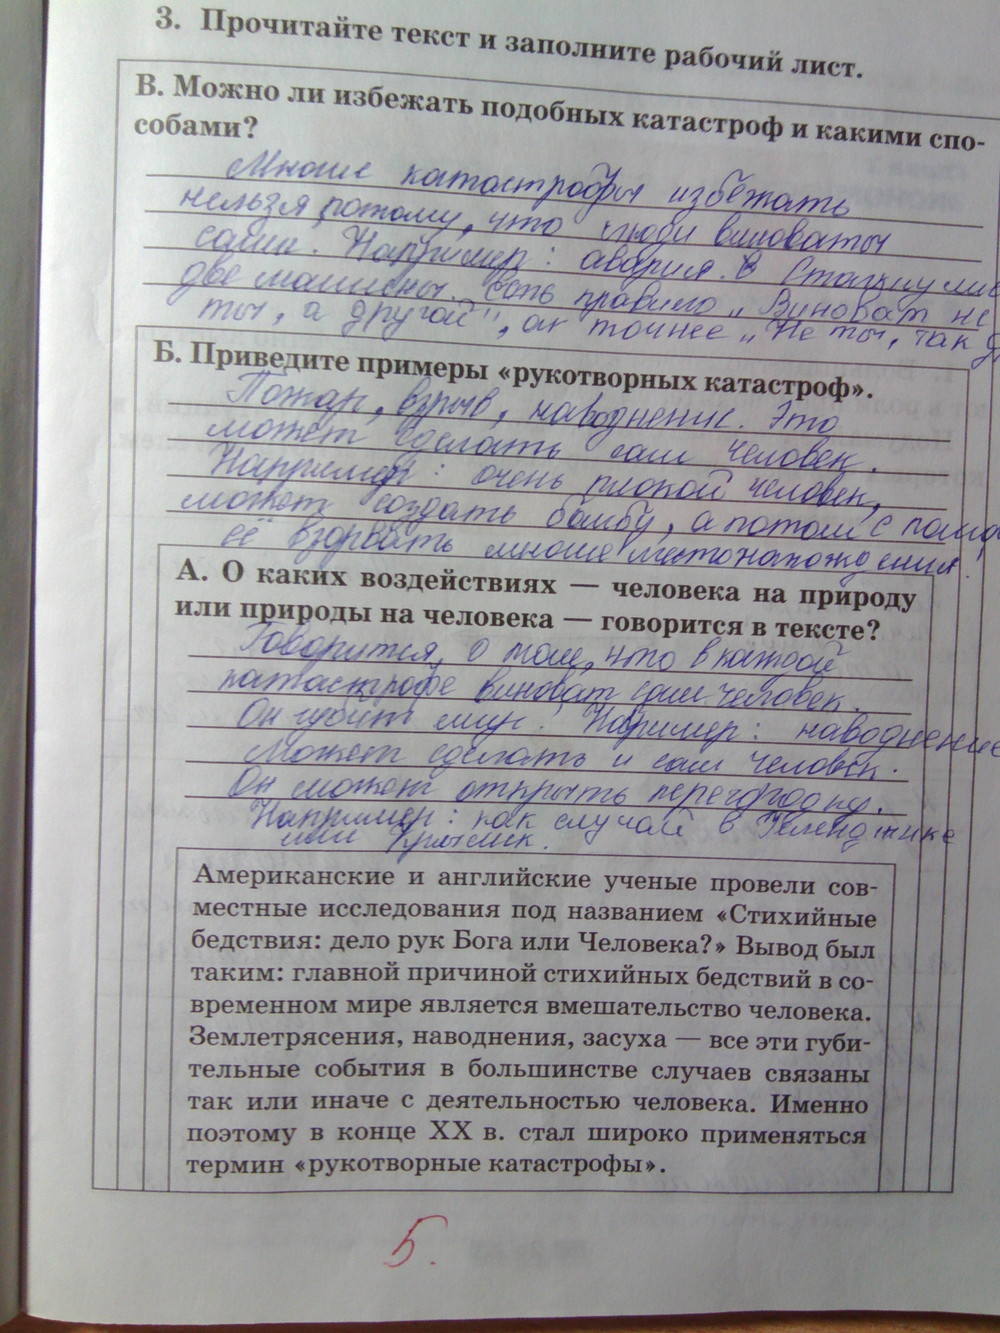 3. Прочитайте текст и заполните рабочий лист.
В. Можно ли избежать подобных катастроф и какими спо-
собами?
Многие катастрофы избежать
нельзя потому, что люди виноваты
сами. Например: авария. В Столкнулись
две машины. Есть правило „Виноват не
ты, а другой", ак точнее „Не ты, так д
Б. Приведите примеры «рукотворных катастроф».
Пожар, взрыв, наводнение. Это
может сделать сам человек.
Например: очень плохой человек,
может создать бомбу, а потом с помощ
её взорвать многие местонахождения.
А. О каких воздействиях — человека на природу
или природы на человека — говорится в тексте?
Говорится, о том, что в каждой
катастрофе виноват сам человек.
Он губит мир. Например: наводнение
может сделать и сам человек.
Он может открыть перегородку.
Например: как случай в Геленджике
или Крымск.
Американские и английские ученые провели сов-
местные исследования под названием «Стихийные
бедствия: дело рук Бога или Человека?» Вывод был
таким: главной причиной стихийных бедствий в со-
временном мире является вмешательство человека.
Землетрясения, наводнения, засуха — все эти губи-
тельные события в большинстве случаев связаны
так или иначе с деятельностью человека. Именно
поэтому в конце XX в. стал широко применяться
термин «рукотворные катастрофы».
5.